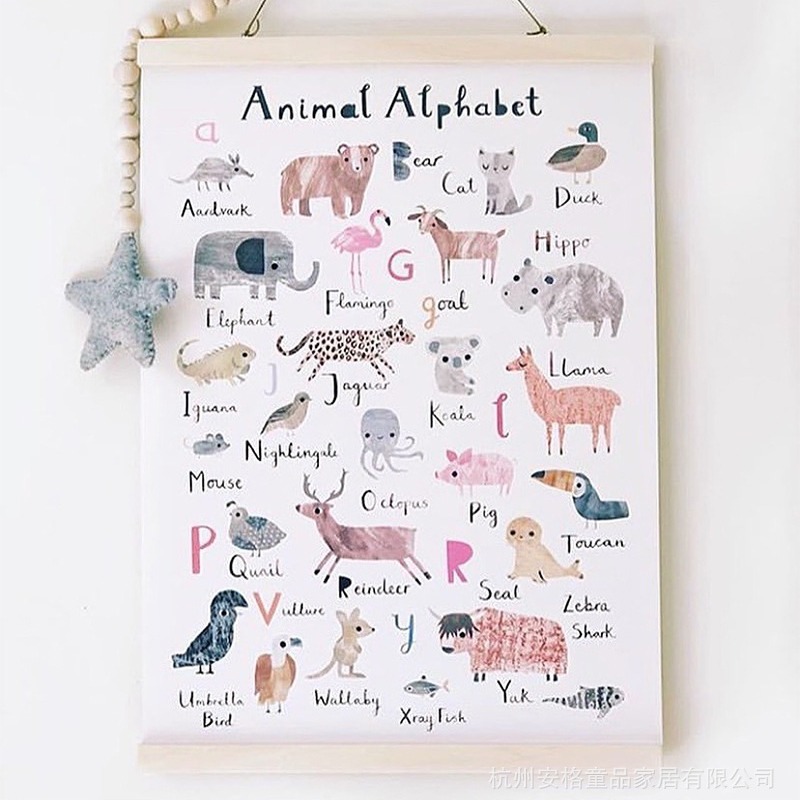 Animal Alphabet
a
Aardvark
Bear
Cat
Duck
Elephant
Flamingo
G
goat
Hippo
Iguana
J
Jaguar
Koala
l
Llama
Mouse
Nightingale
Octopus
Pig
P
Quail
Reindeer
R
Seal
Toucan
Umbrella
Bird
Vulture
Wallaby
Xray Fish
y
Yak
Zebra
Shark
杭州安格童品家居有限公司